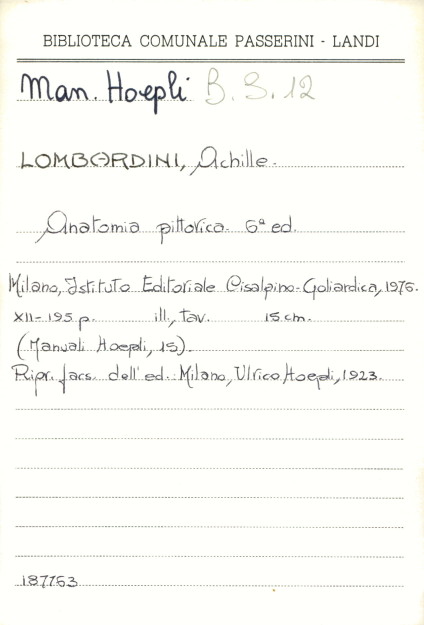 BIBLIOTECA COMUNALE PASSERINI - LANDI
Man. Hoepli B. S. 12
LOMBARDINI, Achille.
Anatomia pittorica. 6ª ed.
Milano, Istituto Editoriale Cisalpino-Goliardica, 1976.
XII-195 p. ill., tav. 15 cm.
(Manuali Hoepli, 15).
Ripr. facs. dell'ed.: Milano, Ulrico Hoepli, 1923.
187753